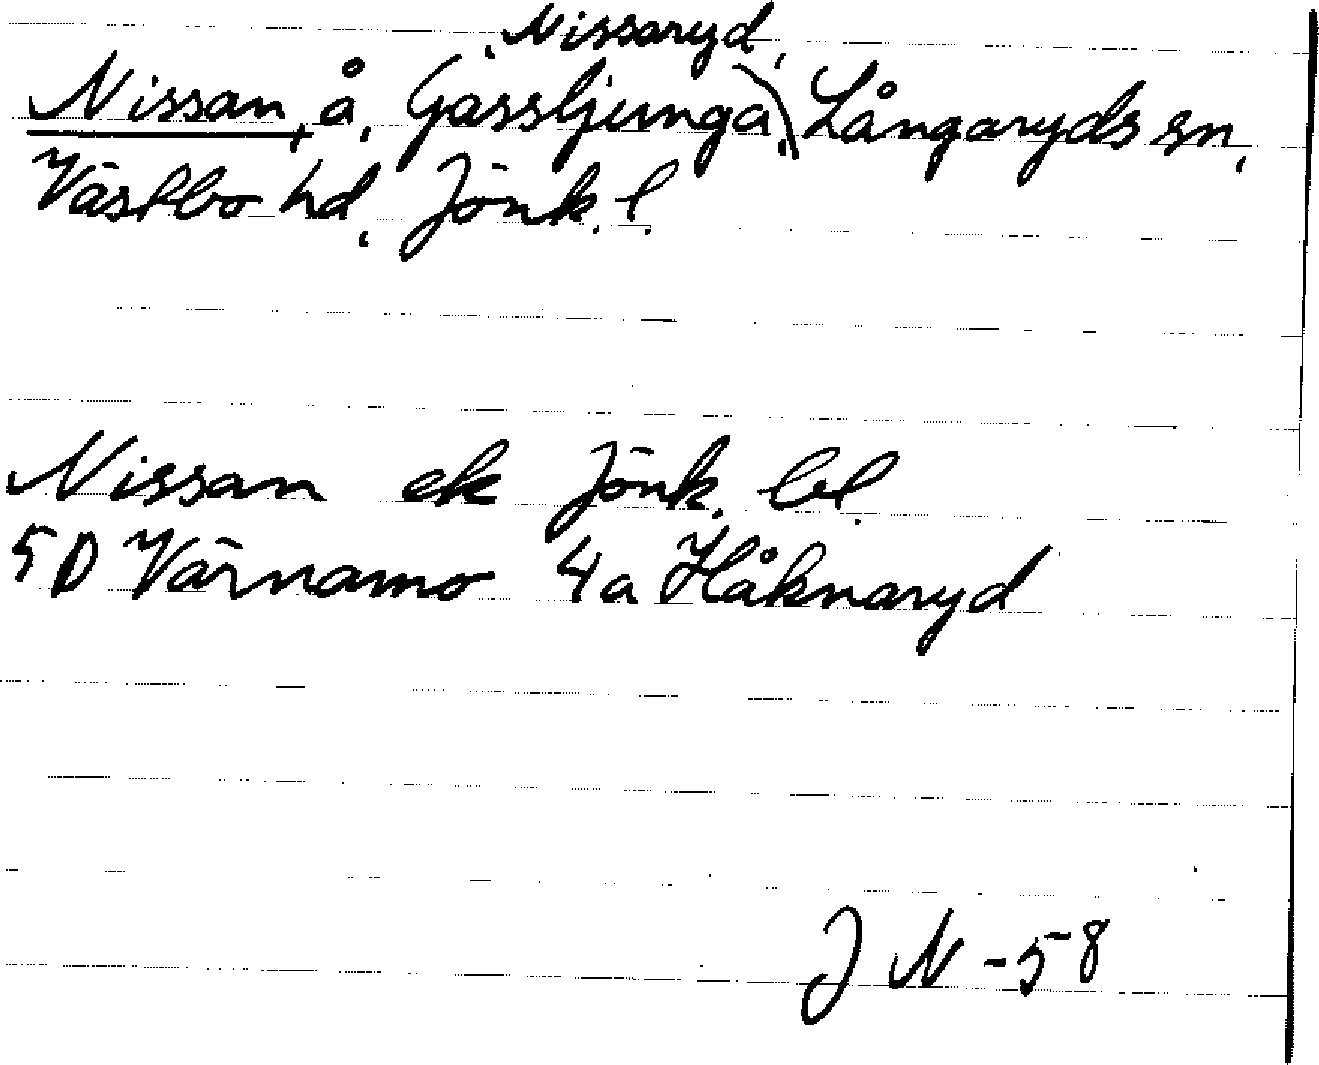 , Nissaryd,
Nissan, å, Gassljunga, Långaryds sn,
Västbo hd, Jönk. l.
Nissan ek Jönk. bl.
5D Värnamo 4a Håknaryd
J N -58